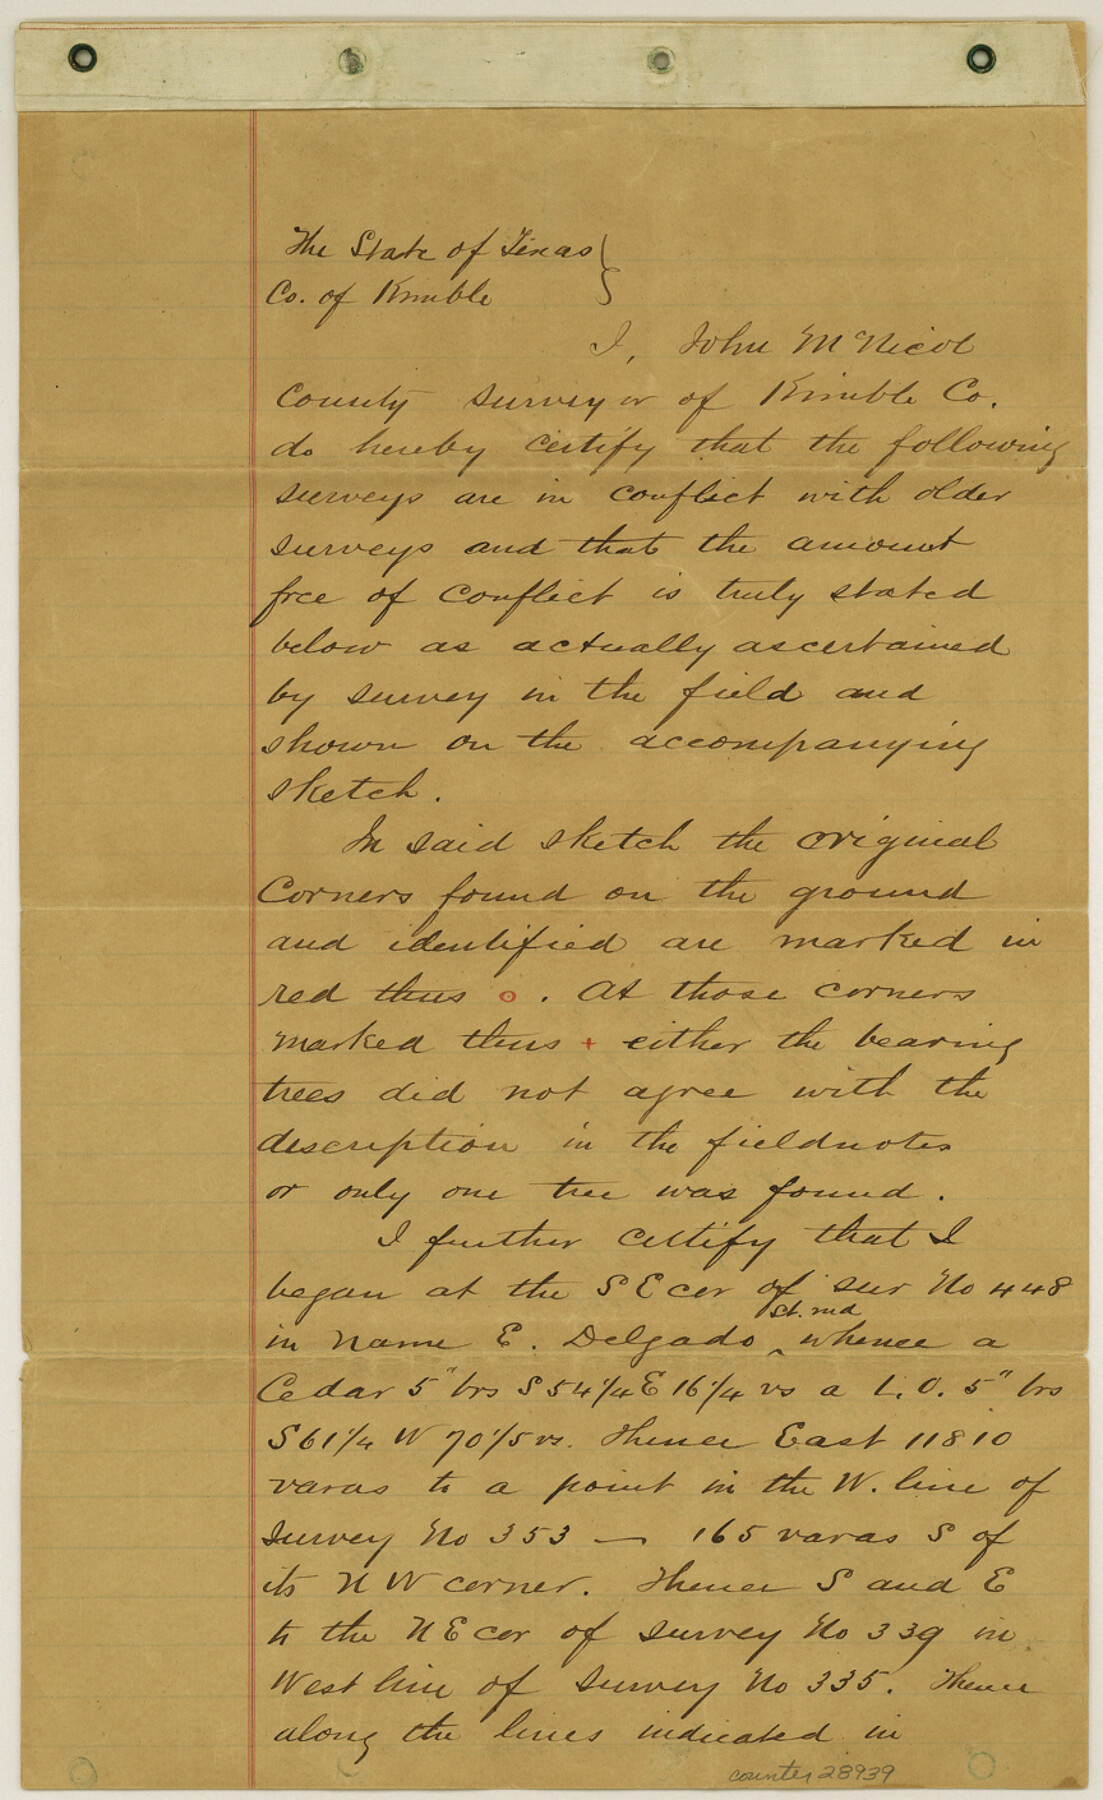 The State of Texas }
Co. of Kimble
I, John McNicol
County Surveyor of Kimble Co.
do hereby certify that the following
surveys are in conflict with older
surveys and that the amount
free of conflict is truly stated
below as actually ascertained
by survey in the field and
shown on the accompanying
sketch.
In said sketch the original
Corners found on the ground
and identified are marked in
red thus o. At those corners
marked thus + either the bearing
trees did not agree with the
description in the fieldnotes
or only one tree was found.
I further certify that I
began at the S E cor of sur No 448
st. md
in name E. Delgado ‸ whence a
Cedar 5" brs S 54 1/4 E 16 1/4 vs a L. O. 5" brs
S 61 1/4 W 70 1/5 vs. Thence East 11810
varas to a point in the W. line of
Survey No 353 — 165 varas S of
its N W corner. Thence S and E
to the N E cor of survey No 339 in
West line of survey No 335. Thence
along the lines indicated in
counter 28939